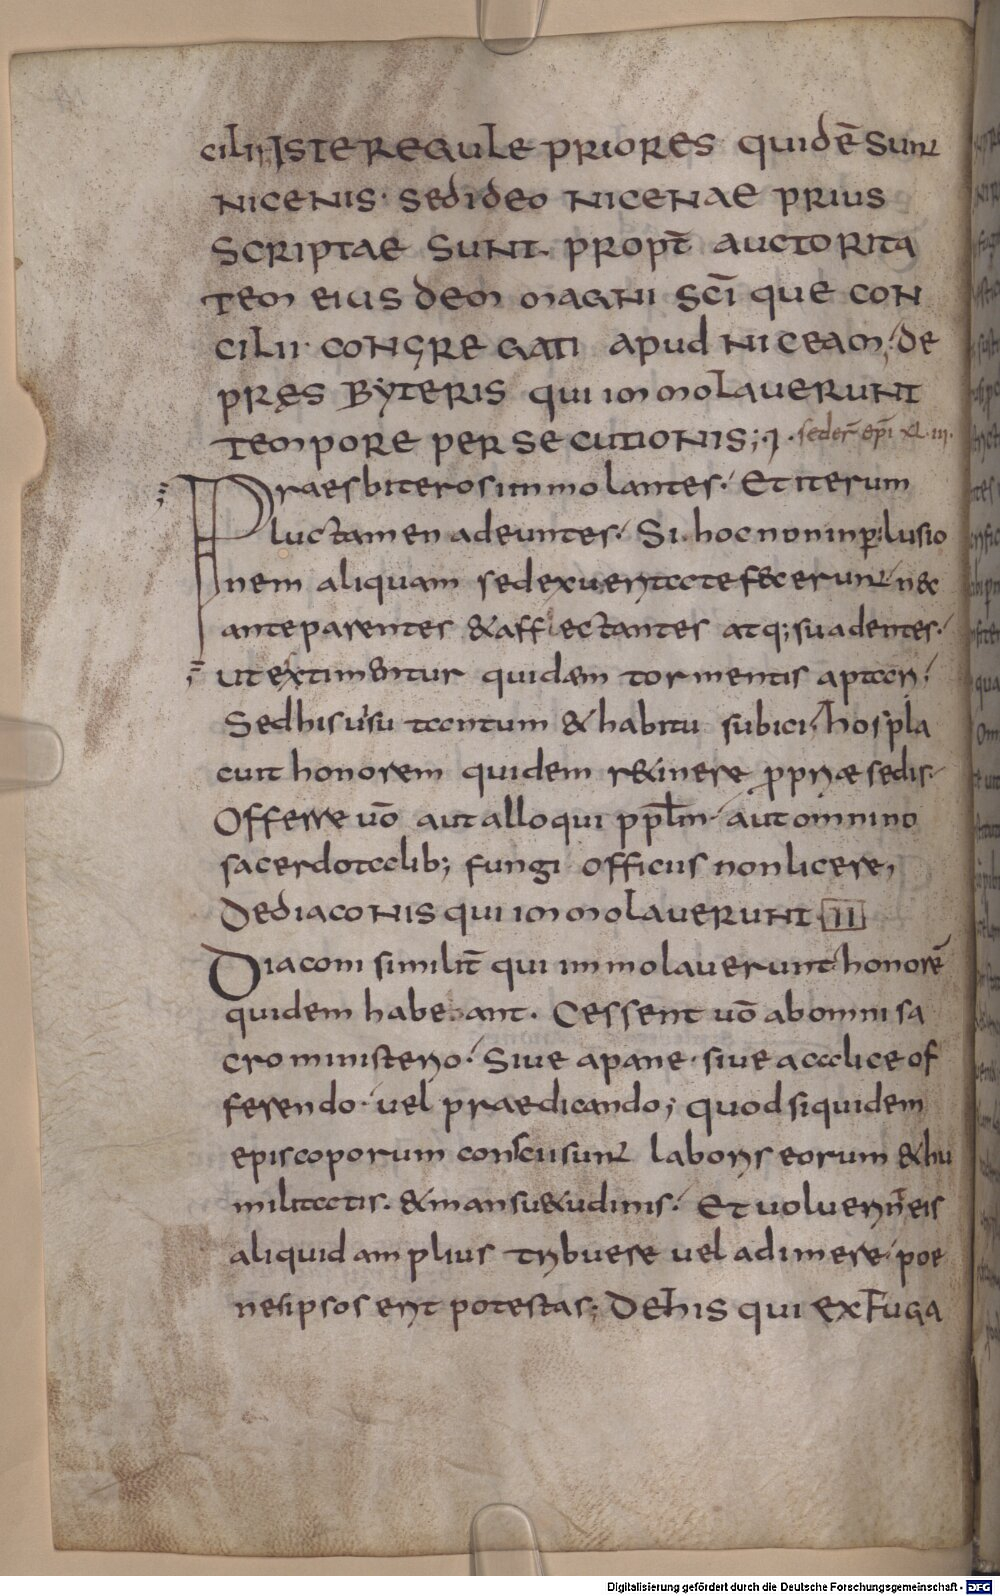 cilii; ISTE REGULE PRIORES quidē sunt
NICENIS · sed ideo NICENAE PRIUS
SCRIPTAE SUNT · PROPT̄ AUCTORITA
TEM EIUSDEM MAGNI SC̄I QUE CON
CILII · CONGREGATI APUD NICEAM; DE
PRĘSBYTERIS QUI IMMOLAVERUNT
TEMPORE PERSECUTIONIS; I · seder̄ ep̄i xl iii.
Praesbiteros immolantes · Et iterum
luctamen adeuntes · Si hoc non in p lusio
nem aliquam sed ex ueritate fecerunt nec
ante parentes & affectantes atq; suadentes ·
ut extimentur quidam tormentis aptari ·
Sed his uisu tantum & habitu subici · hos pla
cuit honorem quidem r&inere propriae sedis ·
Offerre uō aut alloqui pplm · aut omnino
sacerdotalib; fungi officiis non licere,
DE DIACONIS QUI IMMOLAVERUNT II
Diaconi similit̄ qui immolauerunt honorē
quidem habeant · Cessent uō ab omni sa
cro ministerio · Siue a pane · siue a calice of
ferendo · uel praedicando; quod si quidem
episcoporum conscii sunt laboris eorum & hu
militatis · & mansu&udinis · Et uoluerin̄ eis
aliquid amplius tribuere uel adimere · poe
nes ipsos erit potestas; DE HIS QUI EX FUGA
Digitalisierung gefördert durch die Deutsche Forschungsgemeinschaft - DFG